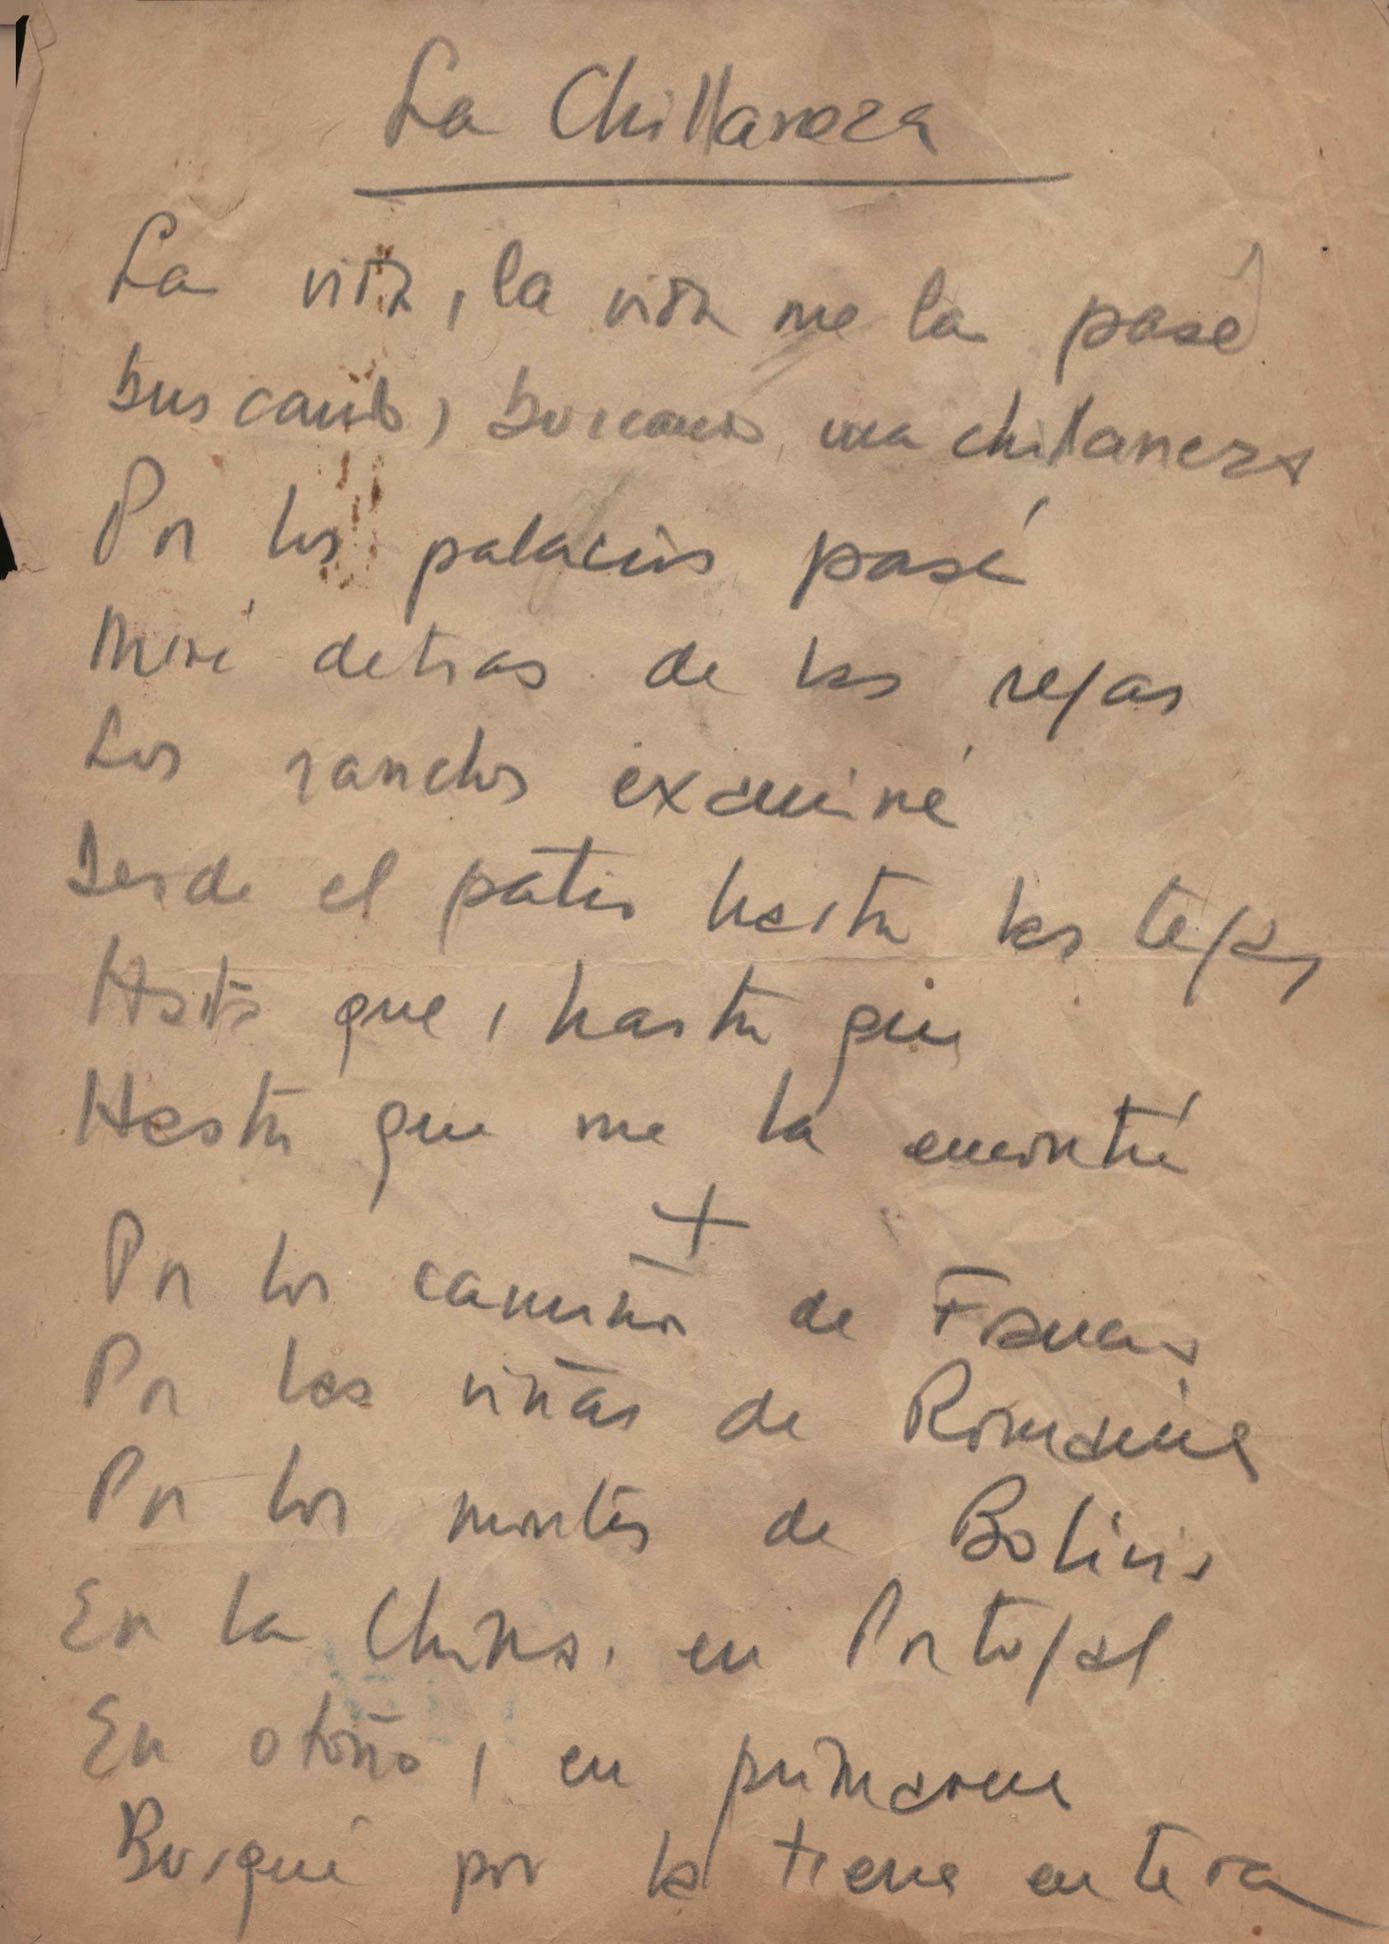 La Chillaneza
La vida, la vida me la pasé
buscando, buscando una chillaneza
Por los palacios pasé
Miré detras de las rejas
Los ranchos examiné
Desde el patio hasta las tejas
Hasta que, hasta que
Hasta que me la encontré
+
Por los caminos de Francia
Por las viñas de Romania
Por los montes de Bolivia
En la China, en Portugal
En otoño, en primavera
Busqué por la tierra entera